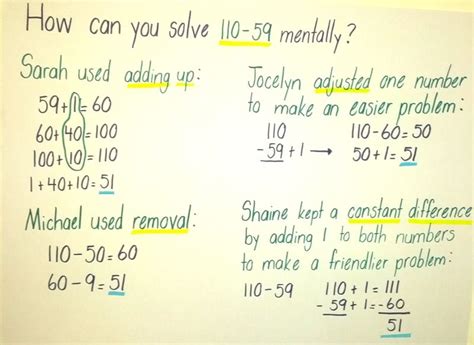 How can you solve 110-59 mentally?
Sarah used adding up:
59+1=60
60+40=100
100+10=110
1+40+10=51
Jocelyn adjusted one number
to make an easier problem:
110 110-60=50
-59+1 → 50+1=51
Michael used removal:
110-50=60
60-9=51
Shaine kept a constant difference
by adding 1 to both numbers
to make a friendlier problem:
110-59 110+1=111
-59+1=-60
51